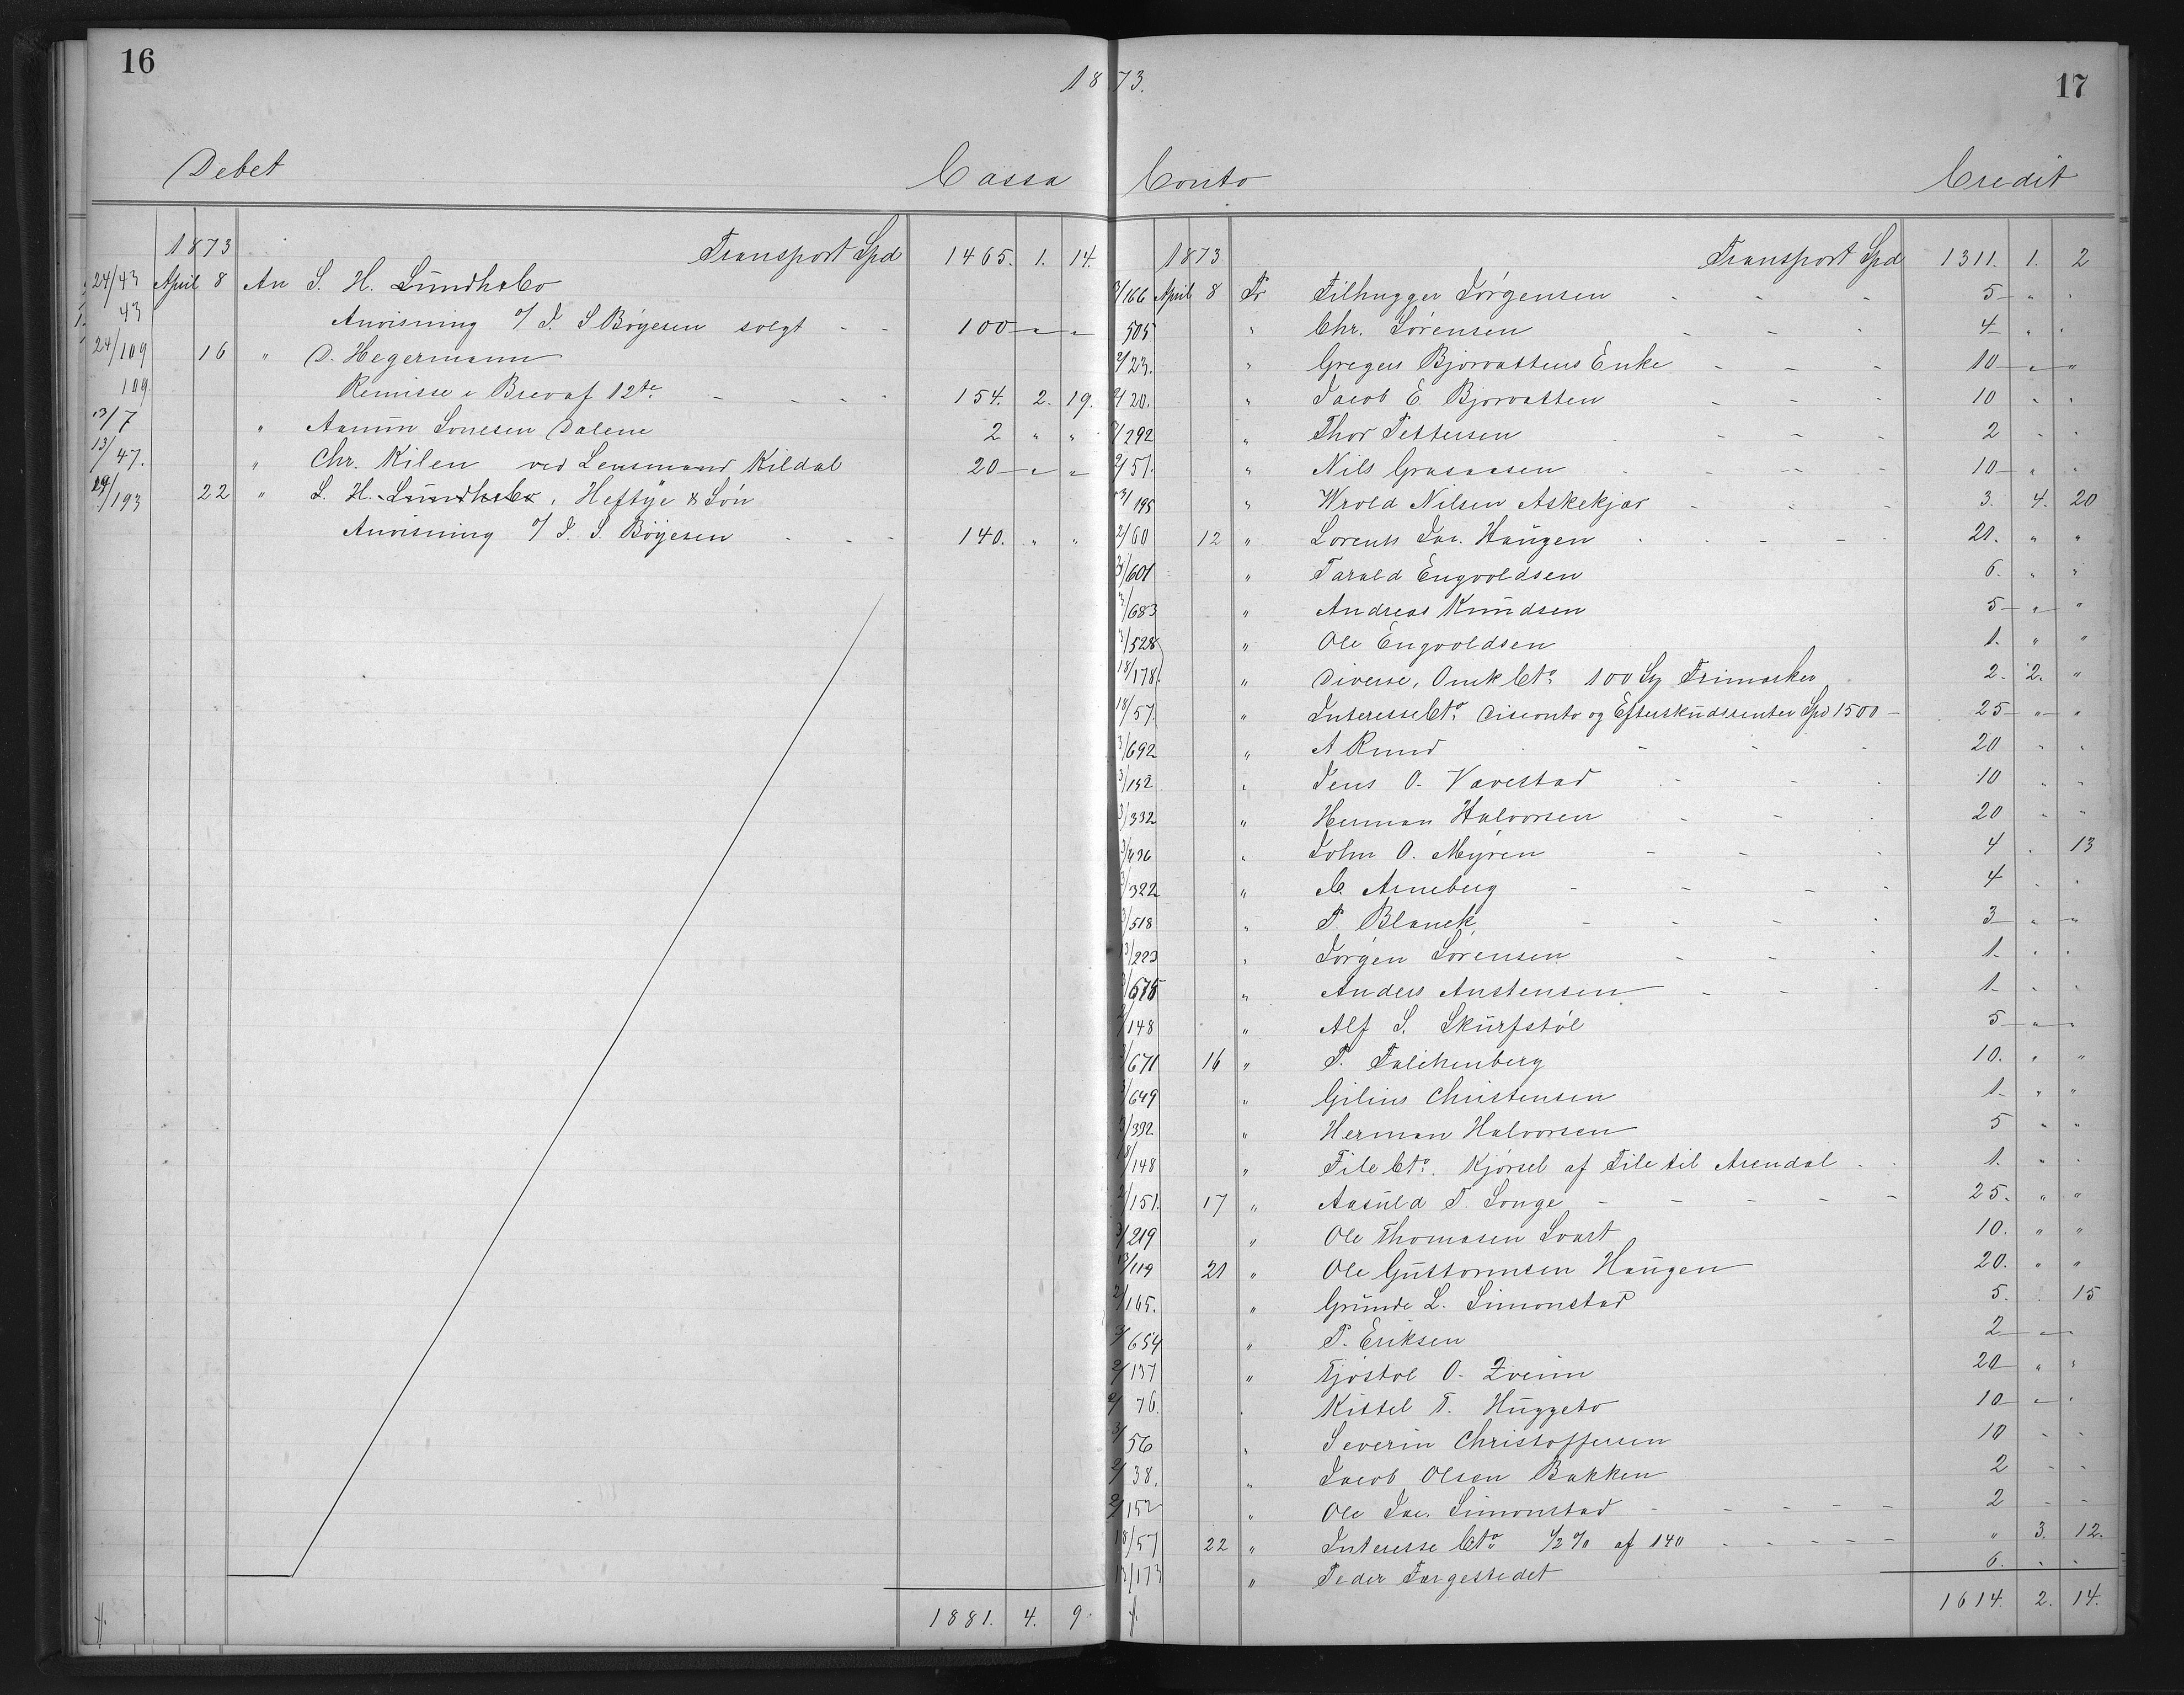 16
1873.
17
Debet Cassa Conto Credit
1873 Transport Spd 1465. 1. 14.
24/43 April 8 An S. H. Lundh & Co
43 Anvisning o/ J. S Böyesen solgt - - 100 " "
24/109 16 " D. Hegermann
109 Remisse i Brev af 12te - - - - 154. 2. 19.
13/7 " Aanun Dalene 2 " "
13/47. " Chr. Kilen ved Lensmand Kildal 20 " "
24/193 22 " S. H. Lundh & Co, Heftye & Søn
Anvisning o/ J. S. Böyesen - - - 140. " "
1881. 4. 9.
1873 Transport Spd 1311. 1. 2
3/166 April 8 Pr Tilhugger Jörgensen - - - 5 " "
505 " Chr. Sörensen - - - 4 " "
2/23. " Gregers Bjorvattens Enke - - - 10 " "
2/20. " Jacob E. Bjorvatten - - 10 " "
3/292 " Thor Pettersen - - 2 " "
2/51. " Nils Graasaasen - - 10 " "
13/195 " Wrold Nilsen Askekjær - - - 3. 4. 20
2/60 12 " Lorents Jac. Haugen - - - - 21. " "
3/601 " Tarald Engvoldsen 6. " "
3/683 " Andreas Knudsen 5 " "
3/528 " Ole Engvoldsen 1. " "
18/178. " Diverse, Omk Cto 100 Frimærker 2. 2. "
18/57. " Interesse Cto Disconto og Efterskudsrenter Spd 1500 - 25 " "
3/692 " A Ruud - - - 20 " "
3/152 " Jens O. Vavestad - - 10 " "
3/332 " Herman Halvorsen - - 20 " "
3/496 " John O. Myren - - 4 " 13
3/322 " C. Arneberg - - - - 4 " "
3/518 " P. Blanck - - - 3 " "
3/223 " Jörgen Sörensen - - 1. " "
3/675 " Anders Austensen - - 1. " "
2/148 " Alf S. Skurfstöl 5 " "
3/671 16 " P. Falchenberg 10. " "
3/649 " Gilius Christensen 1. " "
3/332 " Herman Halvorsen 5 " "
18/148 " File Cto. Kjörsel af File til Arendal - - 1. " "
2/151. 17 " Aasuld T. Songe - - - - - 25. " "
3/219 " Ole Thomasen Svart 10. " "
13/119 21 " Ole Guttormsen Haugen 20. " "
2/165. " Grunde L. Simonstad 5. " 15
3/654 " P. Eriksen 2 " "
2/137 " Tjöstol O. 20 " "
2/76. " Kittel T. Huggeto 10 " "
3/56 " Severin Christoffersen 10 " "
2/38. " Jacob Olsen Bakken 2 " "
2/152 " Ole Jac. Simonstad - - - - - 2 " "
18/57 22 " Interesse Cto 1/2 % af 140 - - - - - " 3. 12.
13/173 " Peder Færgestedet 6. " "
1614. 2. 14.